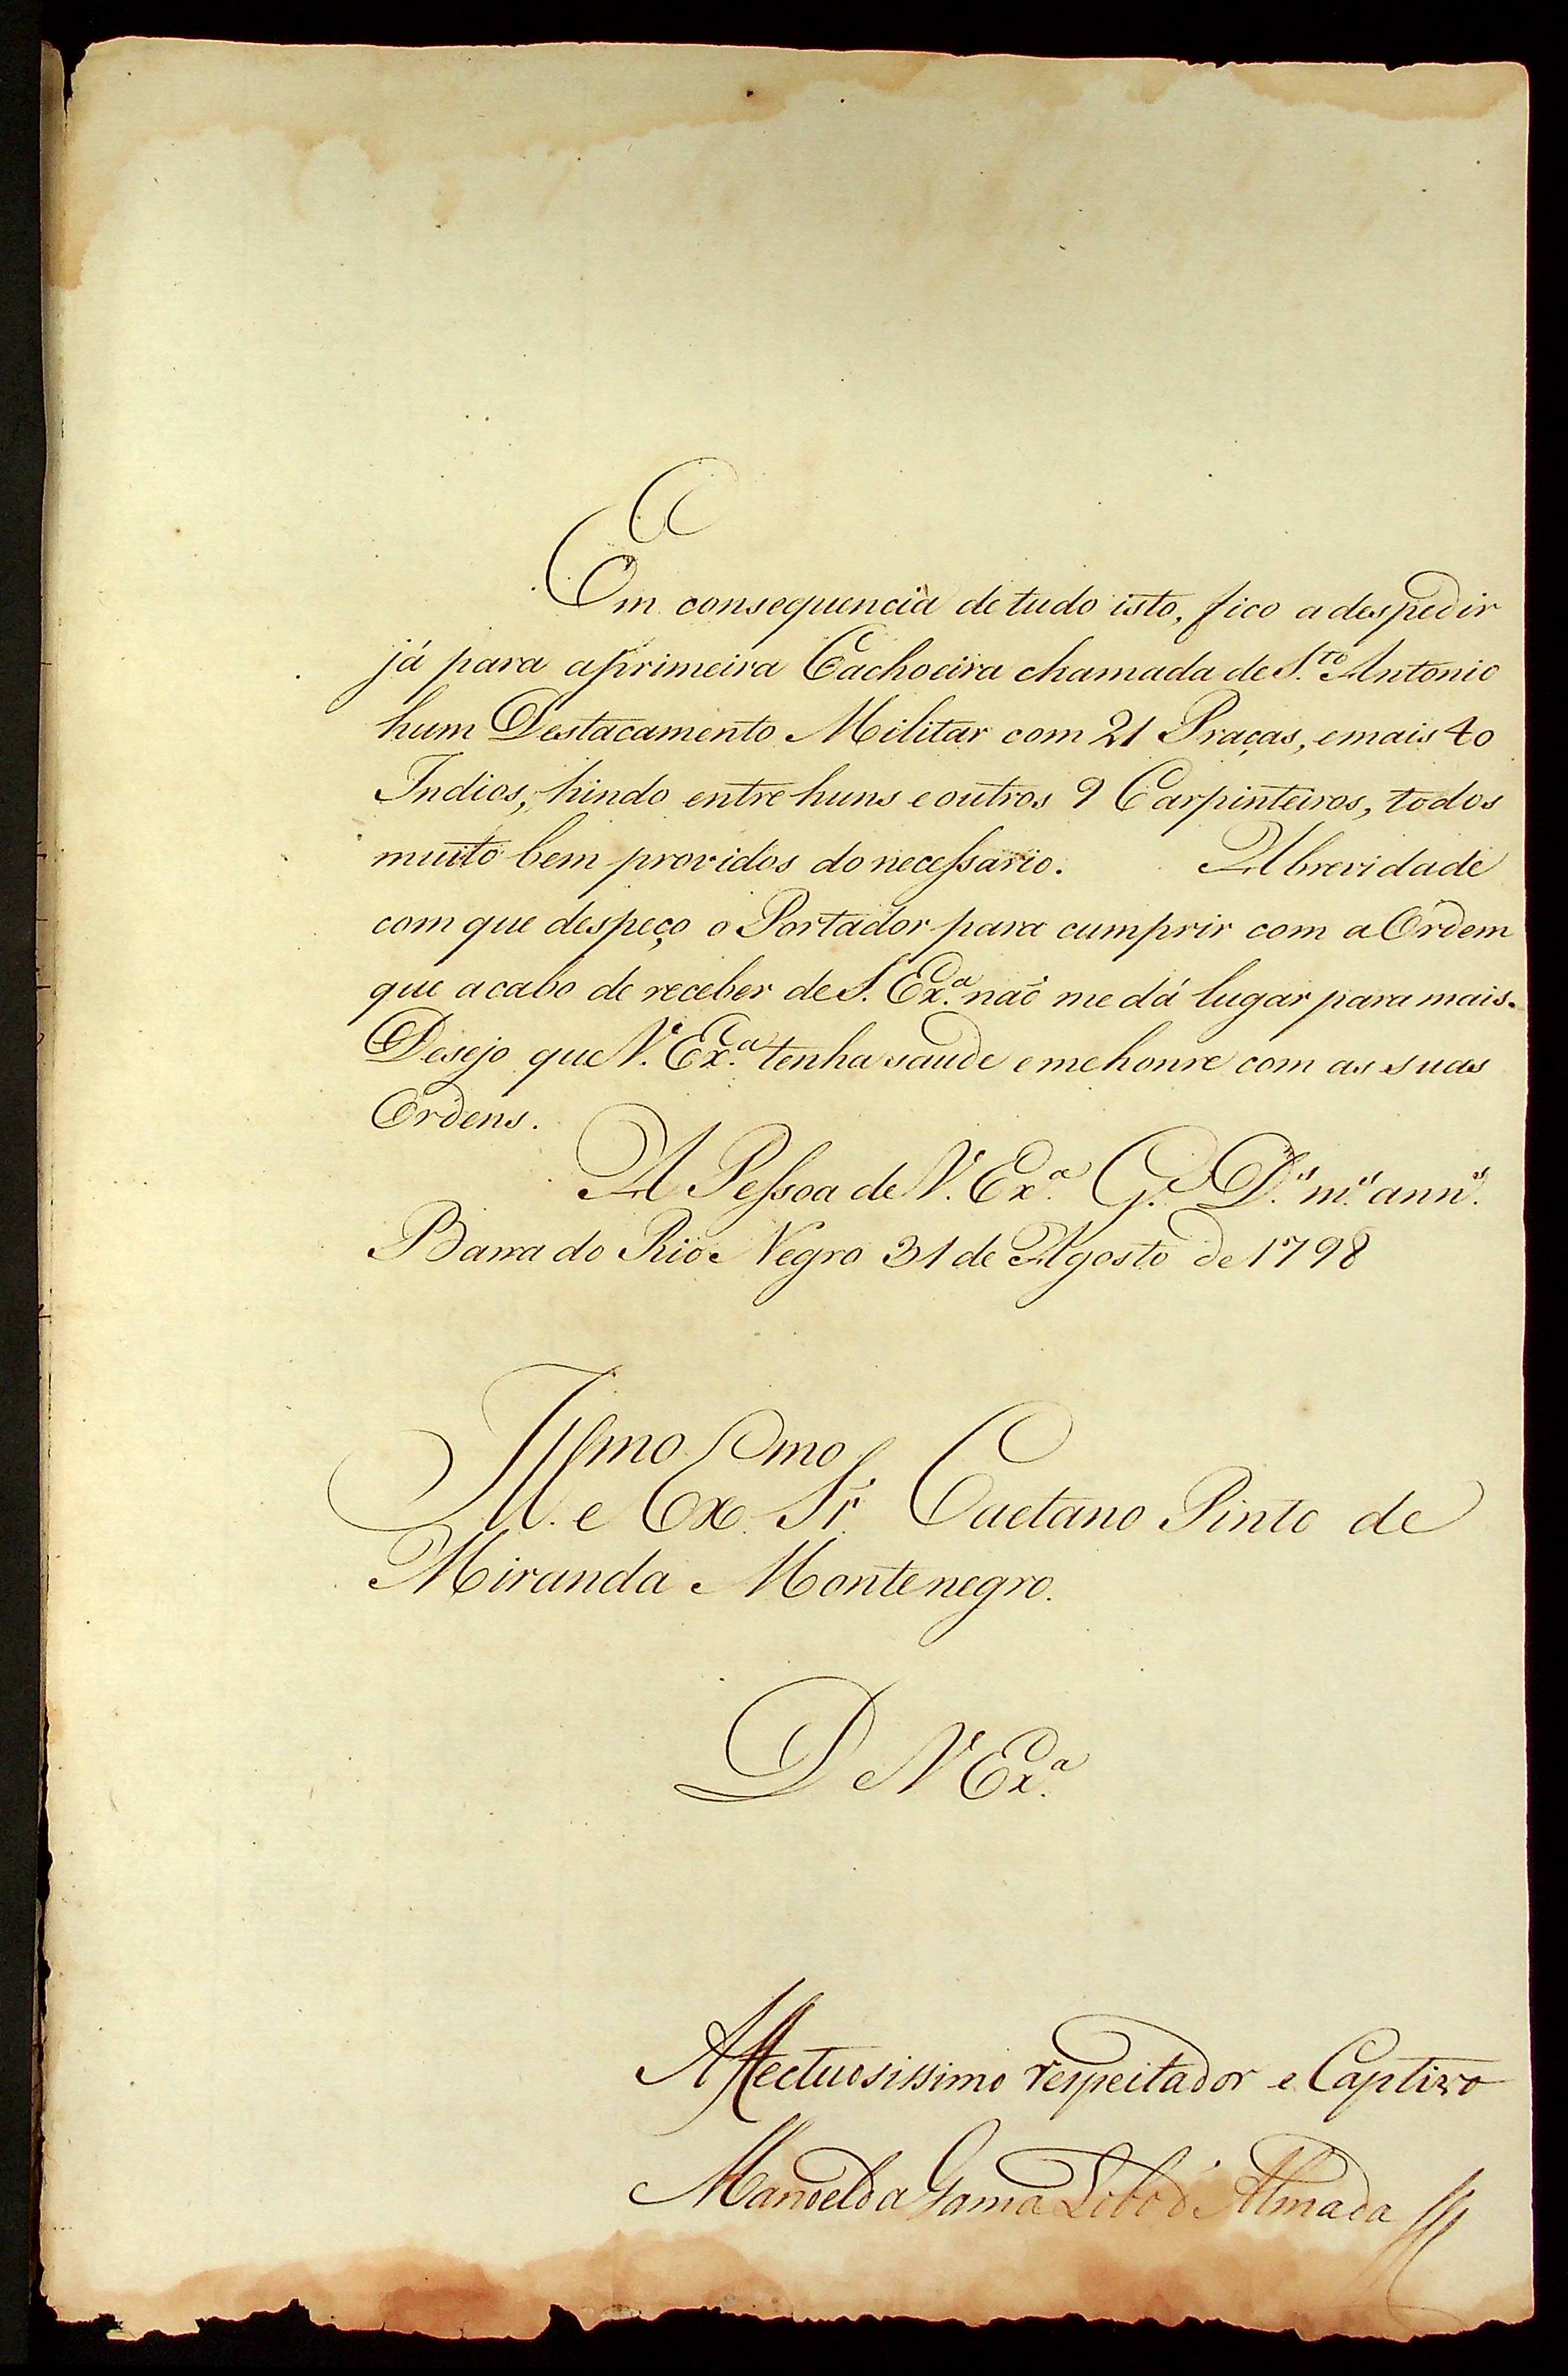 Em consequencia de tudo isto, fico a despedir
já para a primeira Cachoeira chamada de S.to Antonio
hum Destacamento Militar com 21 Praças, e mais 40
Indios, hindo entre huns e outros 9 Carpinteiros, todos
muito bem providos do necessario. A brevidade
com que despeço o Portador para cumprir com a Ordem
que acabo de receber de S. Ex.a naõ me dá lugar para mais.
Desejo que V. Ex.a tenha saude e me honre com as suas
Ordens.
A Pessoa de V. Ex.a G.e D.s m.s ann.s
Barra do Rio Negro 31 de Agosto de 1798
Ill.mo e Ex.mo Sr. Caetano Pinto de
Miranda Montenegro.
De V Ex.a
Affectuosissimo respeitador e Captivo
Manoel da Gama Lobo d'Almada